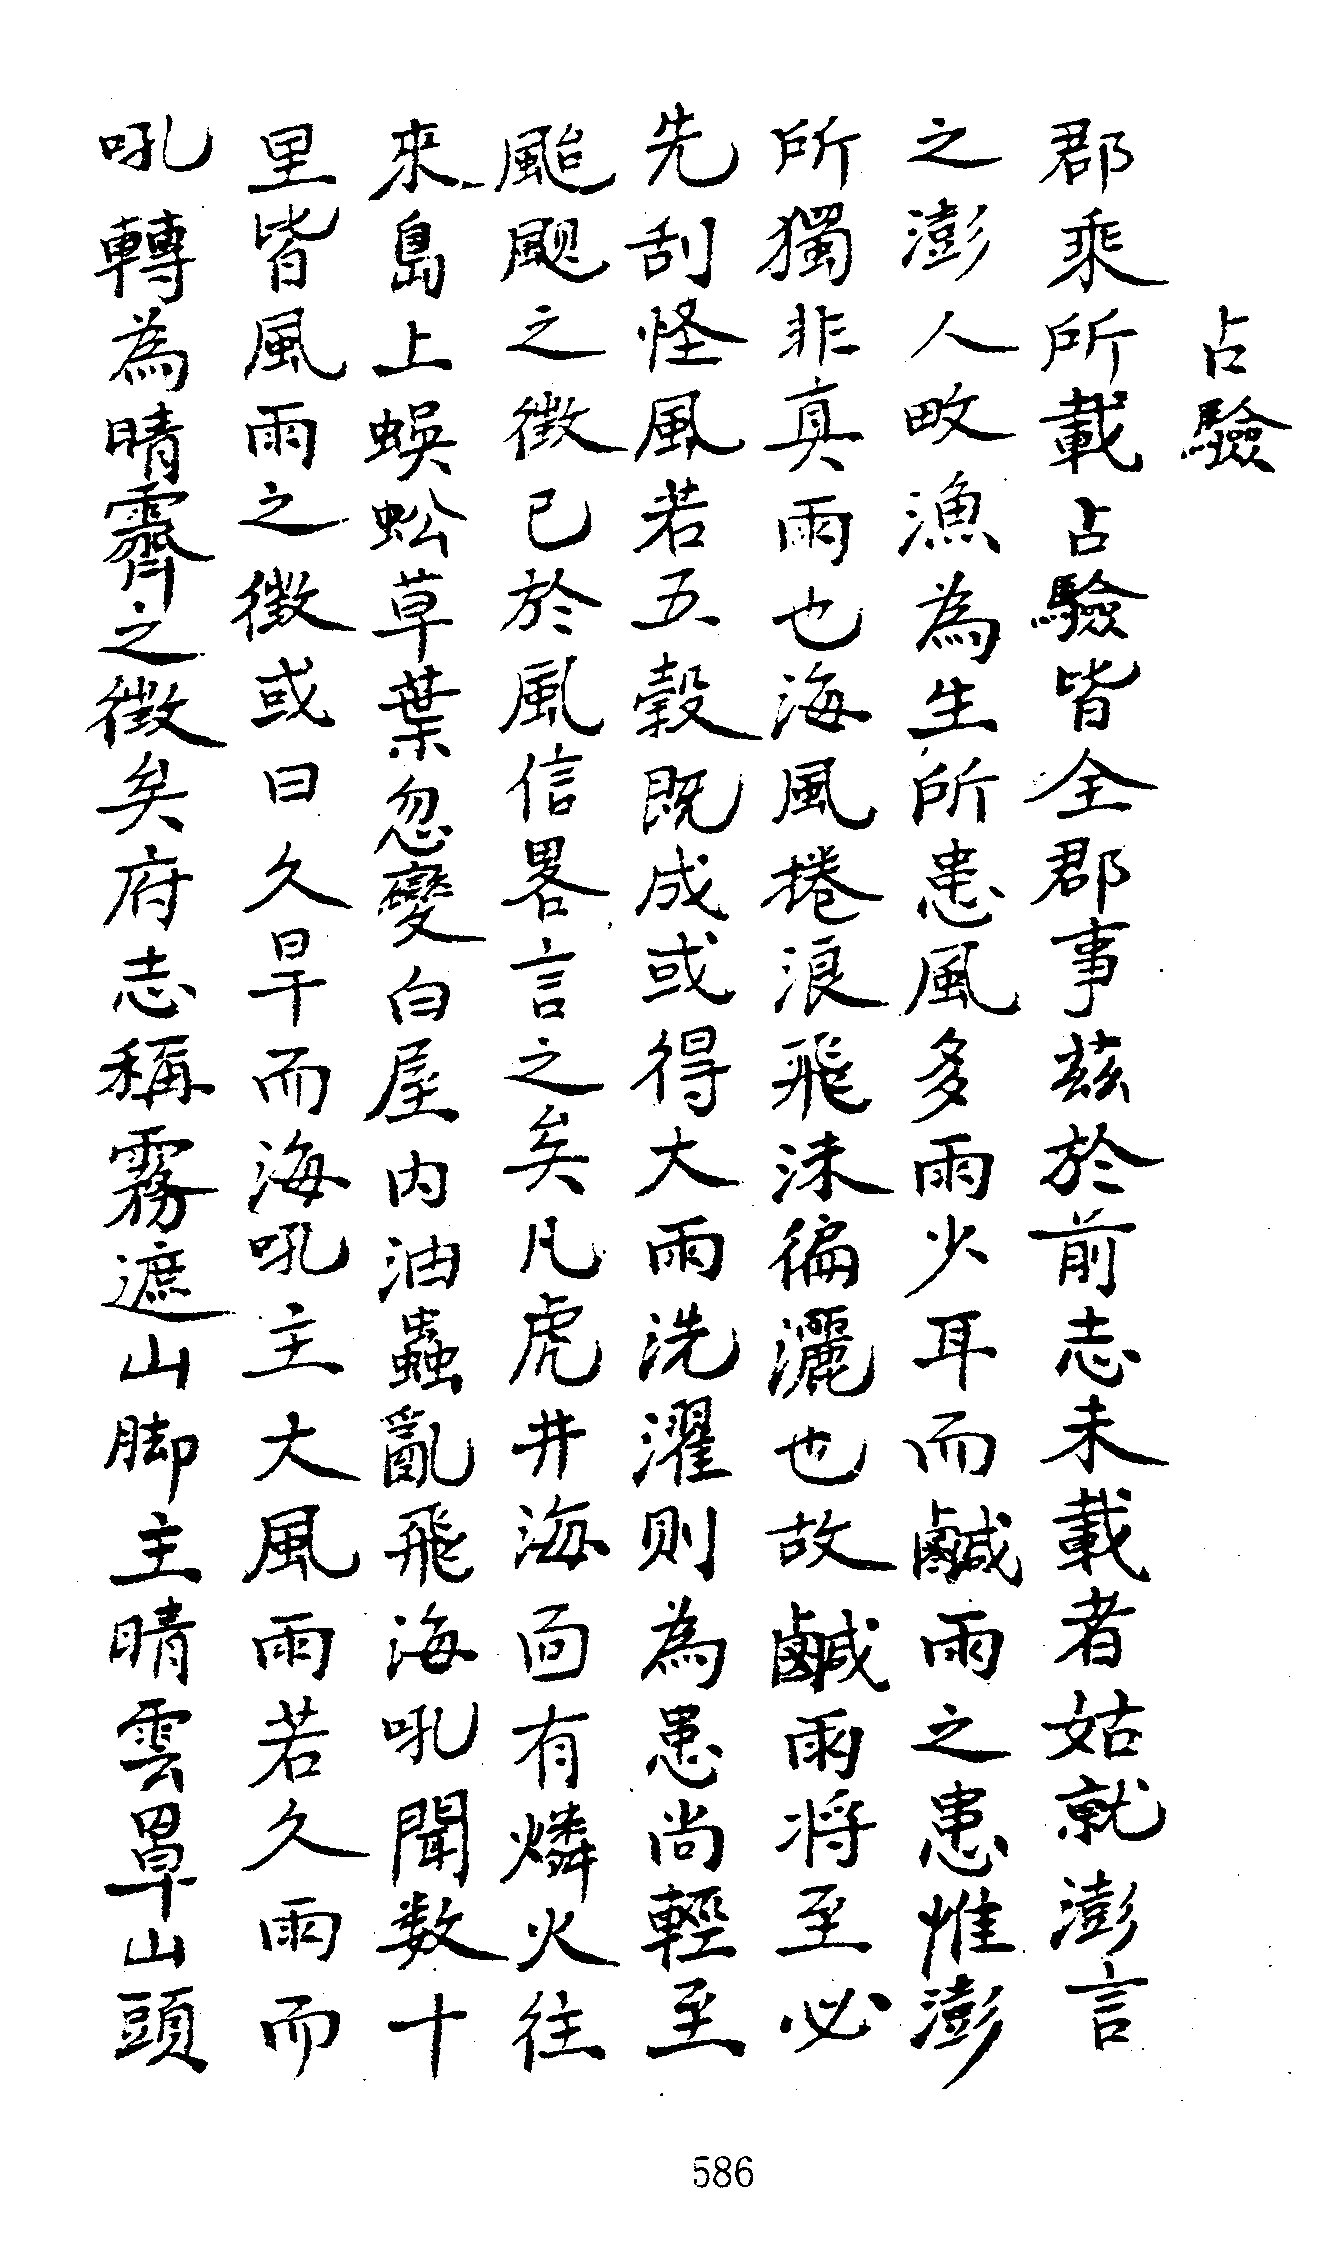 占驗
郡乘所載占驗皆全郡事茲於前志未載者姑就澎言
之澎人畋漁為生所患風多雨少耳而鹹雨之患惟澎
所獨非真雨也海風捲浪飛沫徧灑也故鹹雨將至必
先刮怪風若五穀既成或得大雨洗濯則為患尚輕至
颱颶之徵已於風信畧言之矣凡虎井海面有燐火往
來島上蜈蚣草葉忽變白屋內油蟲亂飛海吼聞数十
里皆風雨之徵或曰久旱而海吼主大風雨若久雨而
吼轉為晴霽之徵矣府志稱霧遮山脚主晴雲罩山頭
586